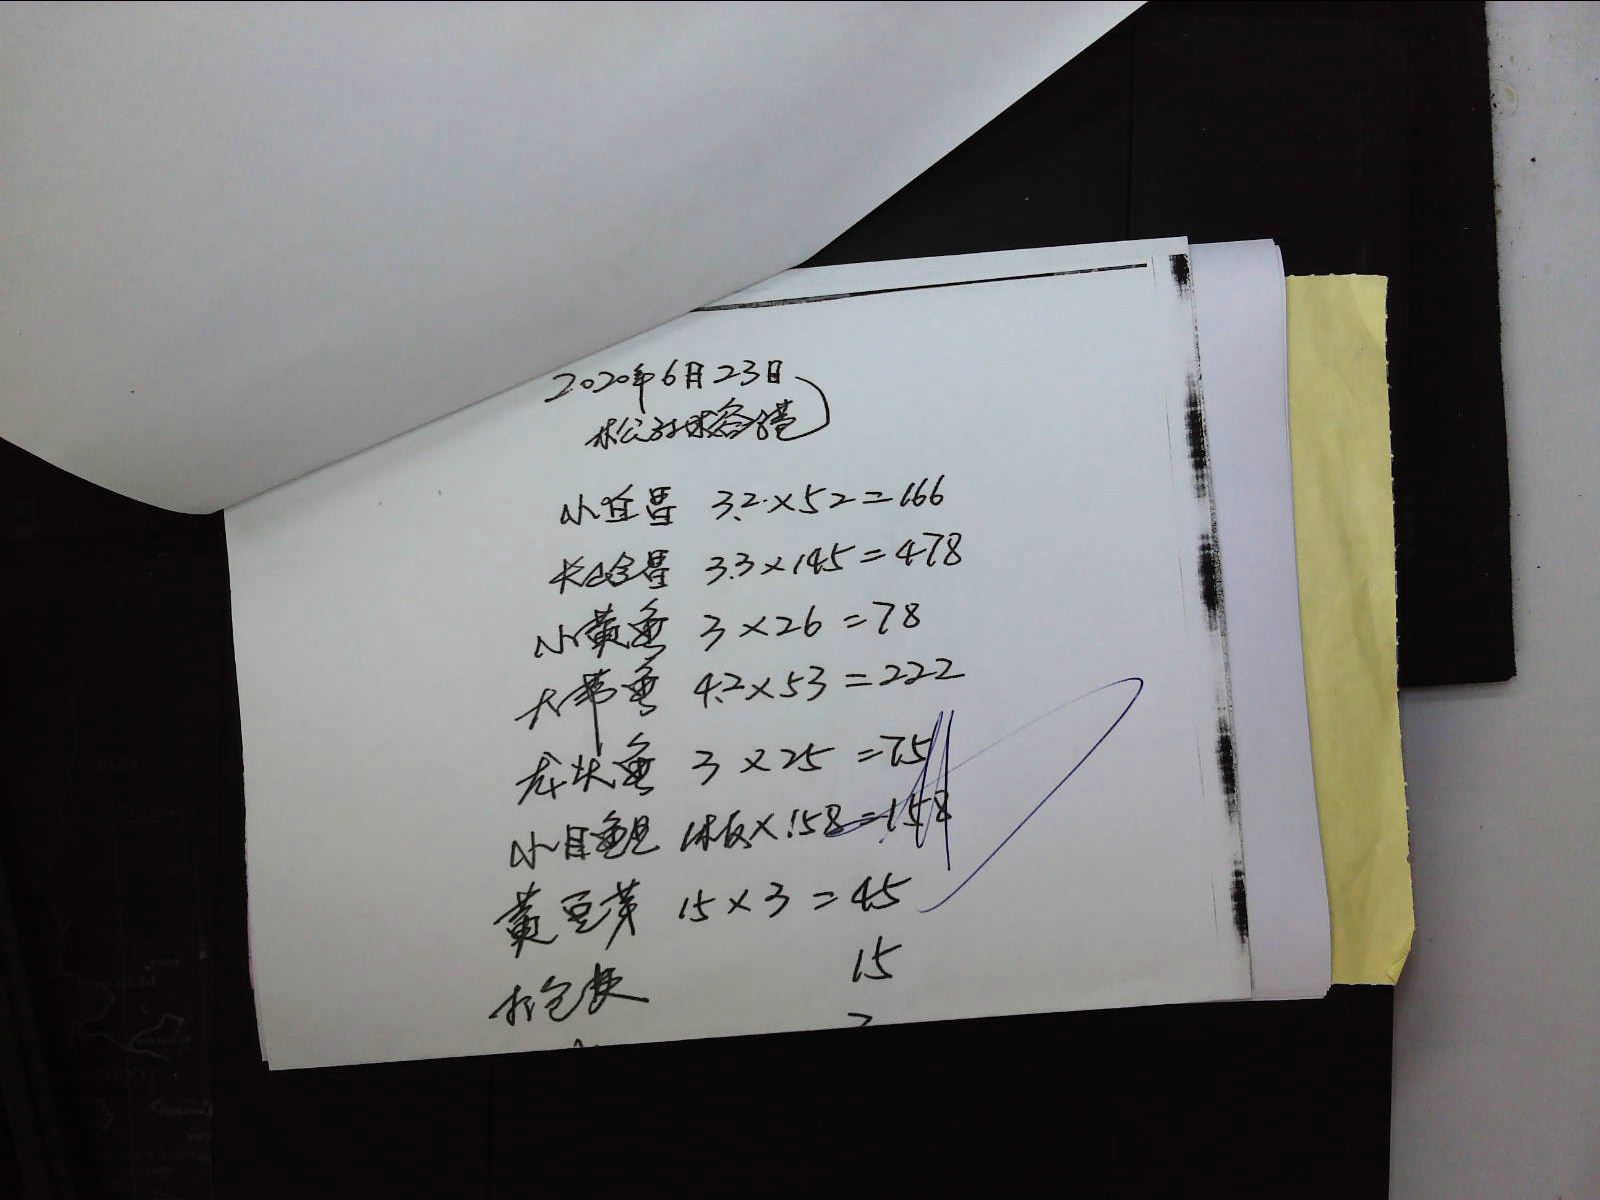 2020年6月23日
小 3.2×52=166
长 3.3×145=478
小黄鱼 3×26=78
大带鱼 4.2×53=222
龙头鱼 3×25=75
小目 1板×158=158
黄豆芽 15×3=45
打包费 15